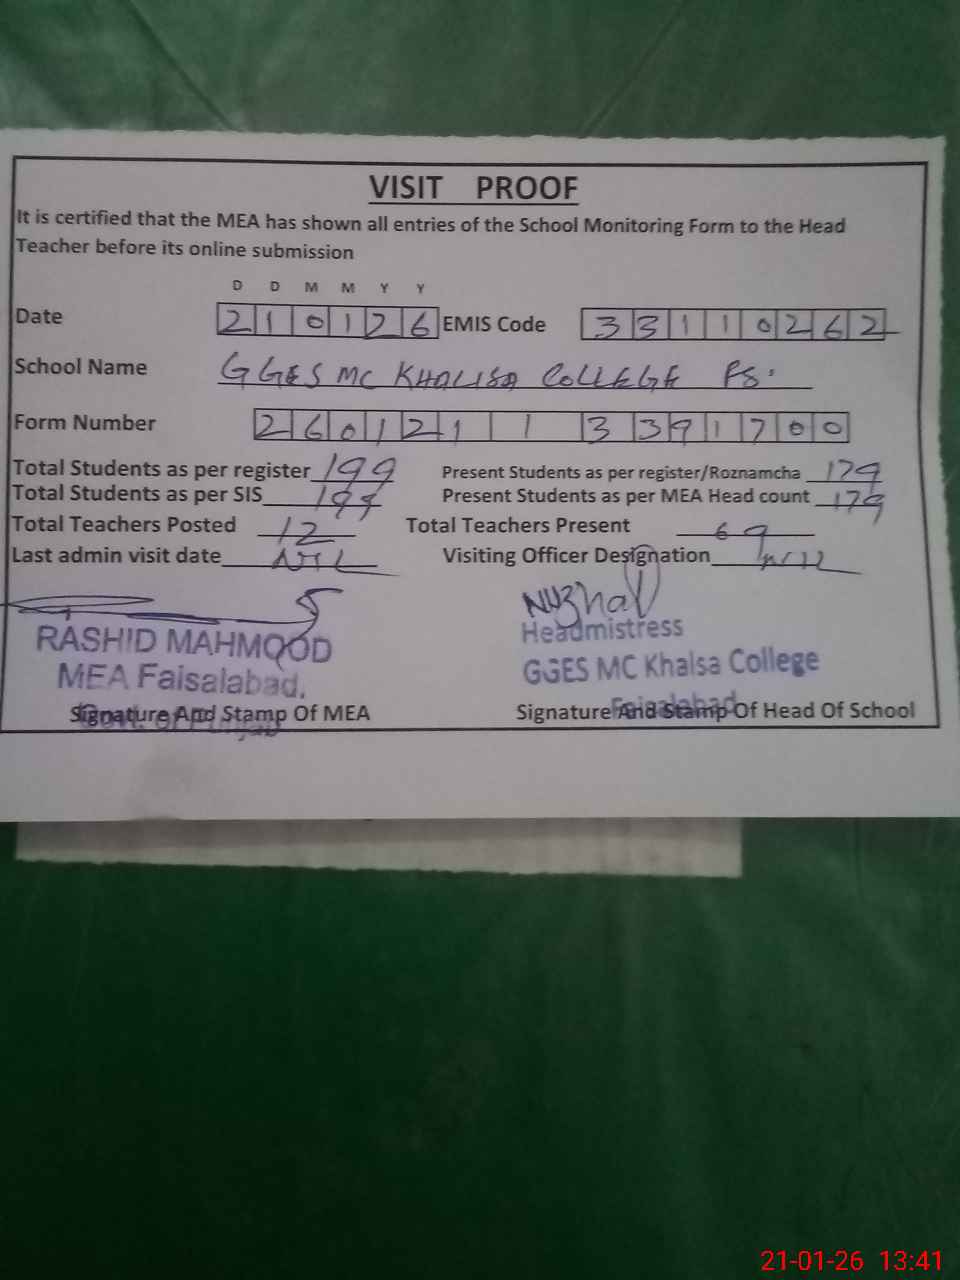 VISIT PROOF
It is certified that the MEA has shown all entries of the School Monitoring Form to the Head
Teacher before its online submission
D D M M Y Y
Date 2 1 0 1 2 6 EMIS Code 3 3 1 1 0 2 6 2
School Name GGES MC KHALISA COLLEGE FS.
Form Number 2 6 0 1 2 1 1 3 3 9 1 7 0 0
Total Students as per register 199 Present Students as per register/Roznamcha 179
Total Students as per SIS 199 Present Students as per MEA Head count 179
Total Teachers Posted 12 Total Teachers Present 69
Last admin visit date NIL Visiting Officer Designation NIL
Nuzhat
RASHID MAHMOOD Headmistress
MEA Faisalabad, GGES MC Khalsa College
Govt. of Punjab Faisalabad
Signature And Stamp Of MEA Signature And Stamp Of Head Of School
21-01-26 13:41